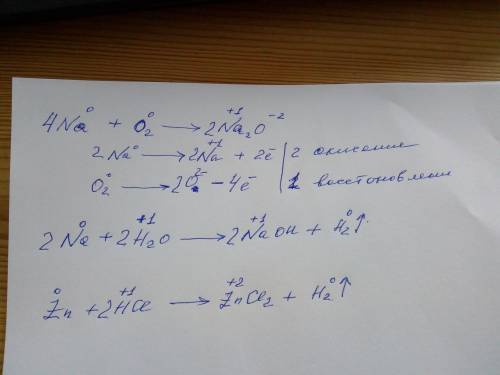 4Na⁰ + O₂⁰ → 2Na₂⁺¹O⁻²
2Na⁰ → 2Na⁺¹ + 2ē | 2 окисление
O₂⁰ → 2O²⁻ - 4ē | 1 восстановлени
2Na⁰ + 2H₂⁺¹O → 2Na⁺¹OH + H₂⁰↑
Zn⁰ + 2H⁺¹Cl → Zn⁺²Cl₂ + H₂⁰↑